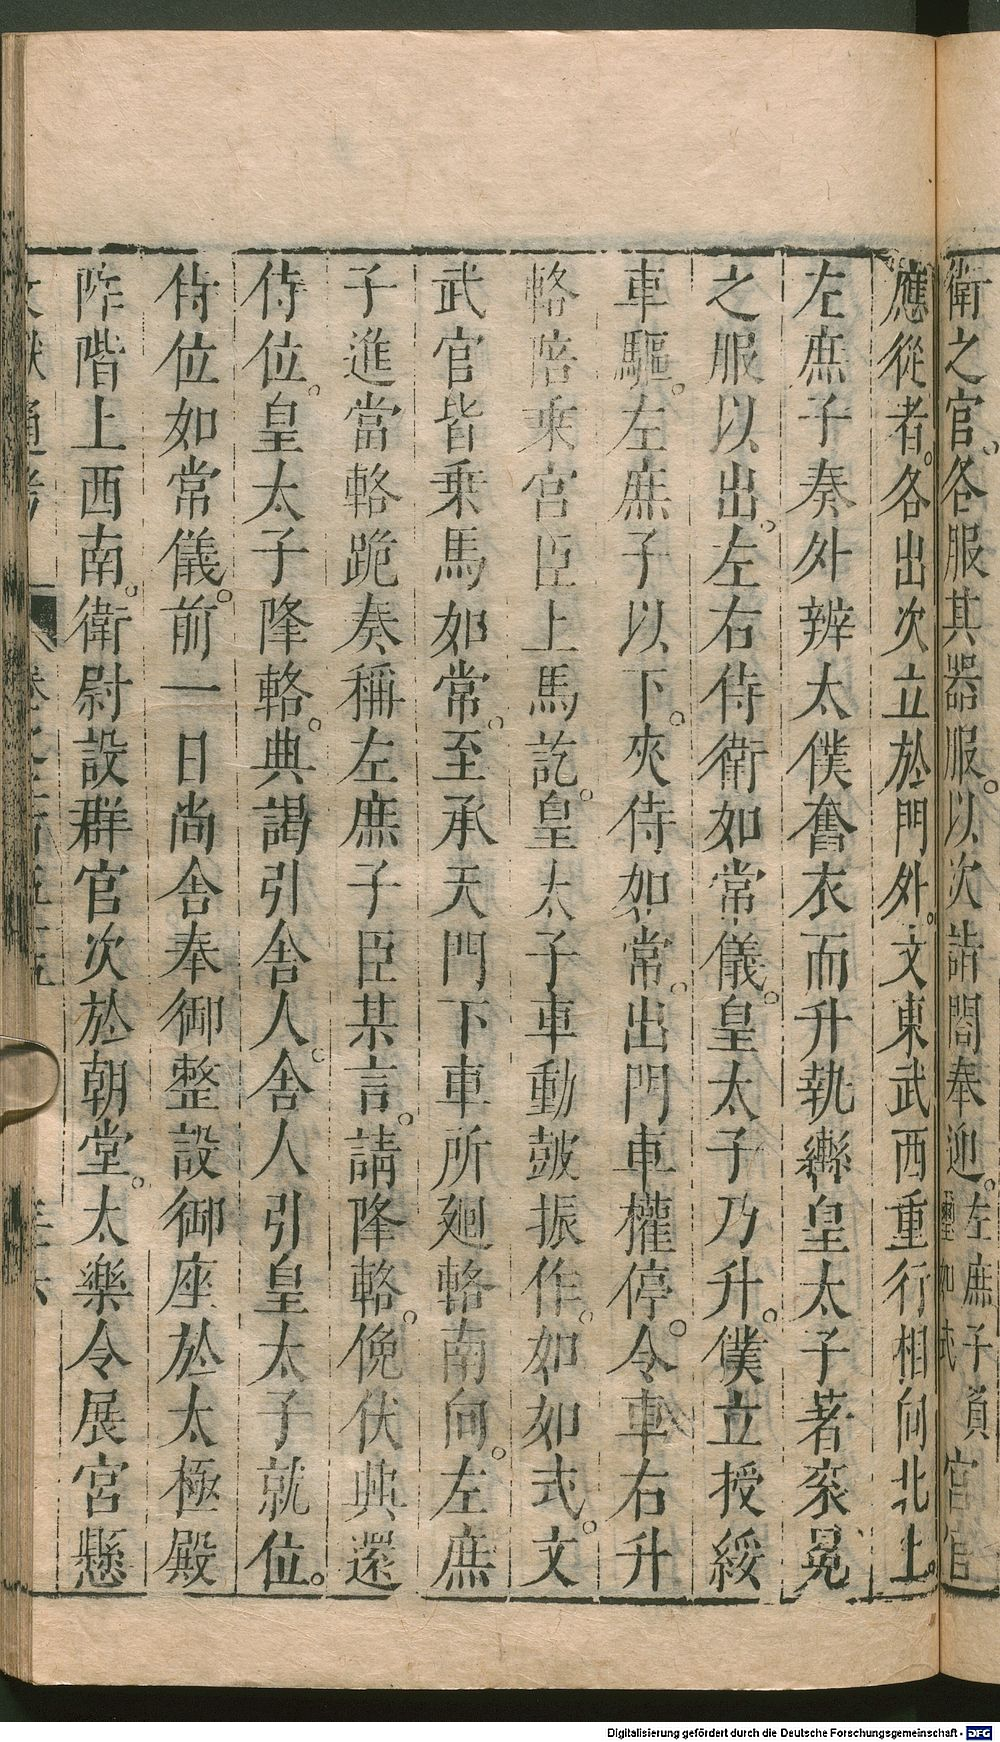 衛之官。各服其器服。以次詣閤奉迎。左庶子負璽如式 宮官
應從者。各出次立於門外。文東武西重行相向北上。
左庶子奏外辨太僕奮衣而升執轡皇太子著衮冕
之服以出。左右侍衛如常儀。皇太子乃升。僕立授綏
車驅。左庶子以下。夾侍如常。出門車權停。令車右升
輅陪乘宮臣上馬訖。皇太子車動皷振作。如如式。文
武官皆乗馬如常。至承天門下車所廻輅南向。左庶
子進當輅跪奏稱左庶子臣某言。請降輅。俛伏興還
侍位。皇太子降輅。典謁引舍人。舍人引皇太子就位。
侍位如常儀。前一日尚舍奉御整設御座於太極殿
阼階上西南。衛尉設群官次於朝堂。太樂令展宮懸
Digitalisierung gefördert durch die Deutsche Forschungsgemeinschaft - DFG